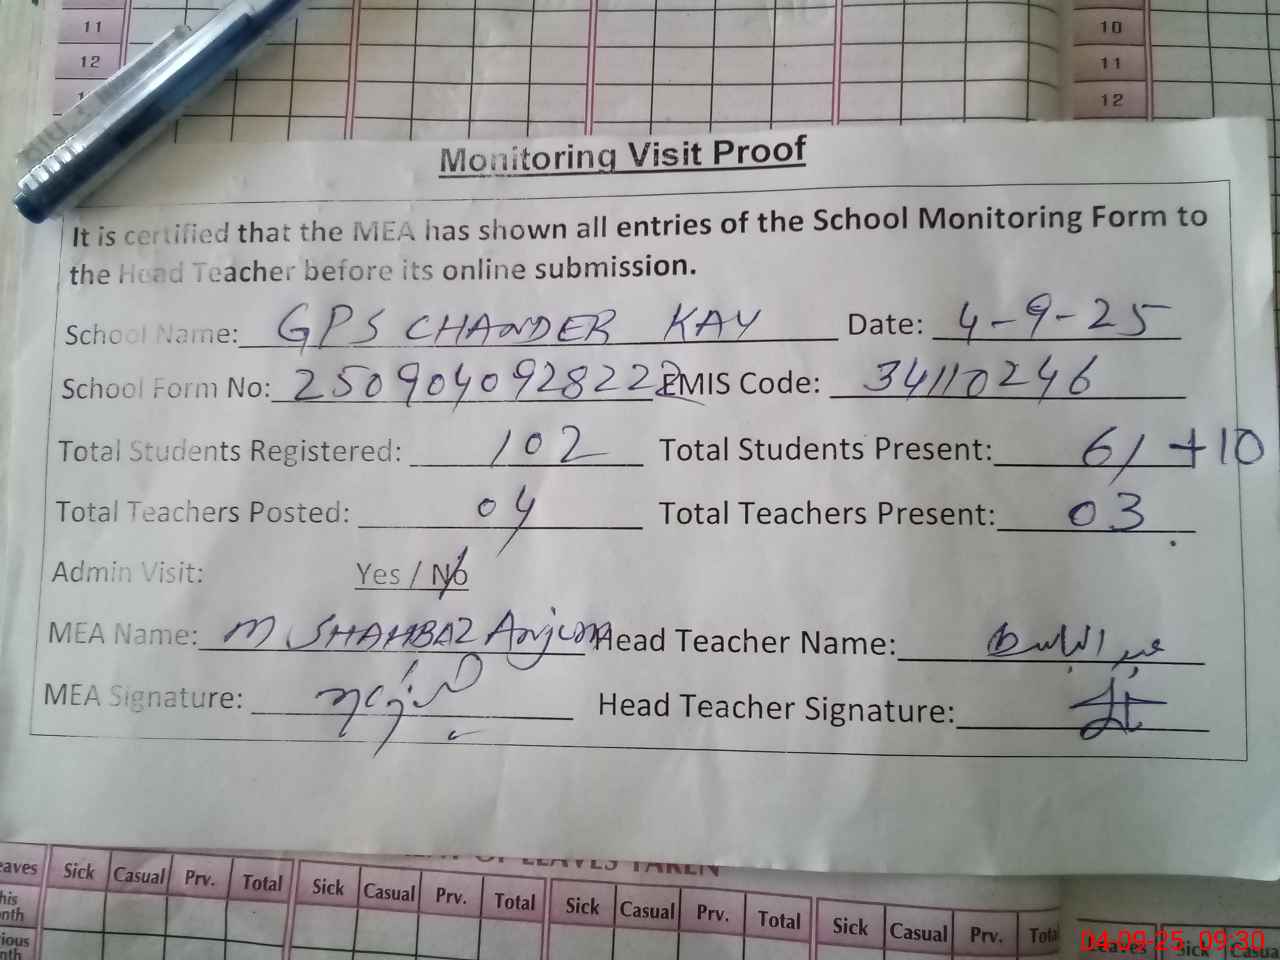 11
12
10
11
12
Monitoring Visit Proof
It is certified that the MEA has shown all entries of the School Monitoring Form to
the Head Teacher before its online submission.
School Name: GPS CHANDER KAY Date: 4-9-25
School Form No: 2509040928222 EMIS Code: 34110246
Total Students Registered: 102 Total Students Present: 61 +10
Total Teachers Posted: 04 Total Teachers Present: 03
Admin Visit: Yes / No
MEA Name: M SHAHBAZ Anjum Head Teacher Name: عبدالباسط
MEA Signature: Head Teacher Signature:
OF LEAVES TAKEN
eaves Sick Casual Prv. Total Sick Casual Prv. Total Sick Casual Prv. Total Sick Casual Prv. Total eaves Sick Casua
his
nth
ious
nth
04-09-25 09:30